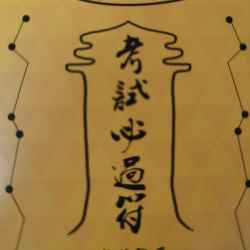 考試必過符